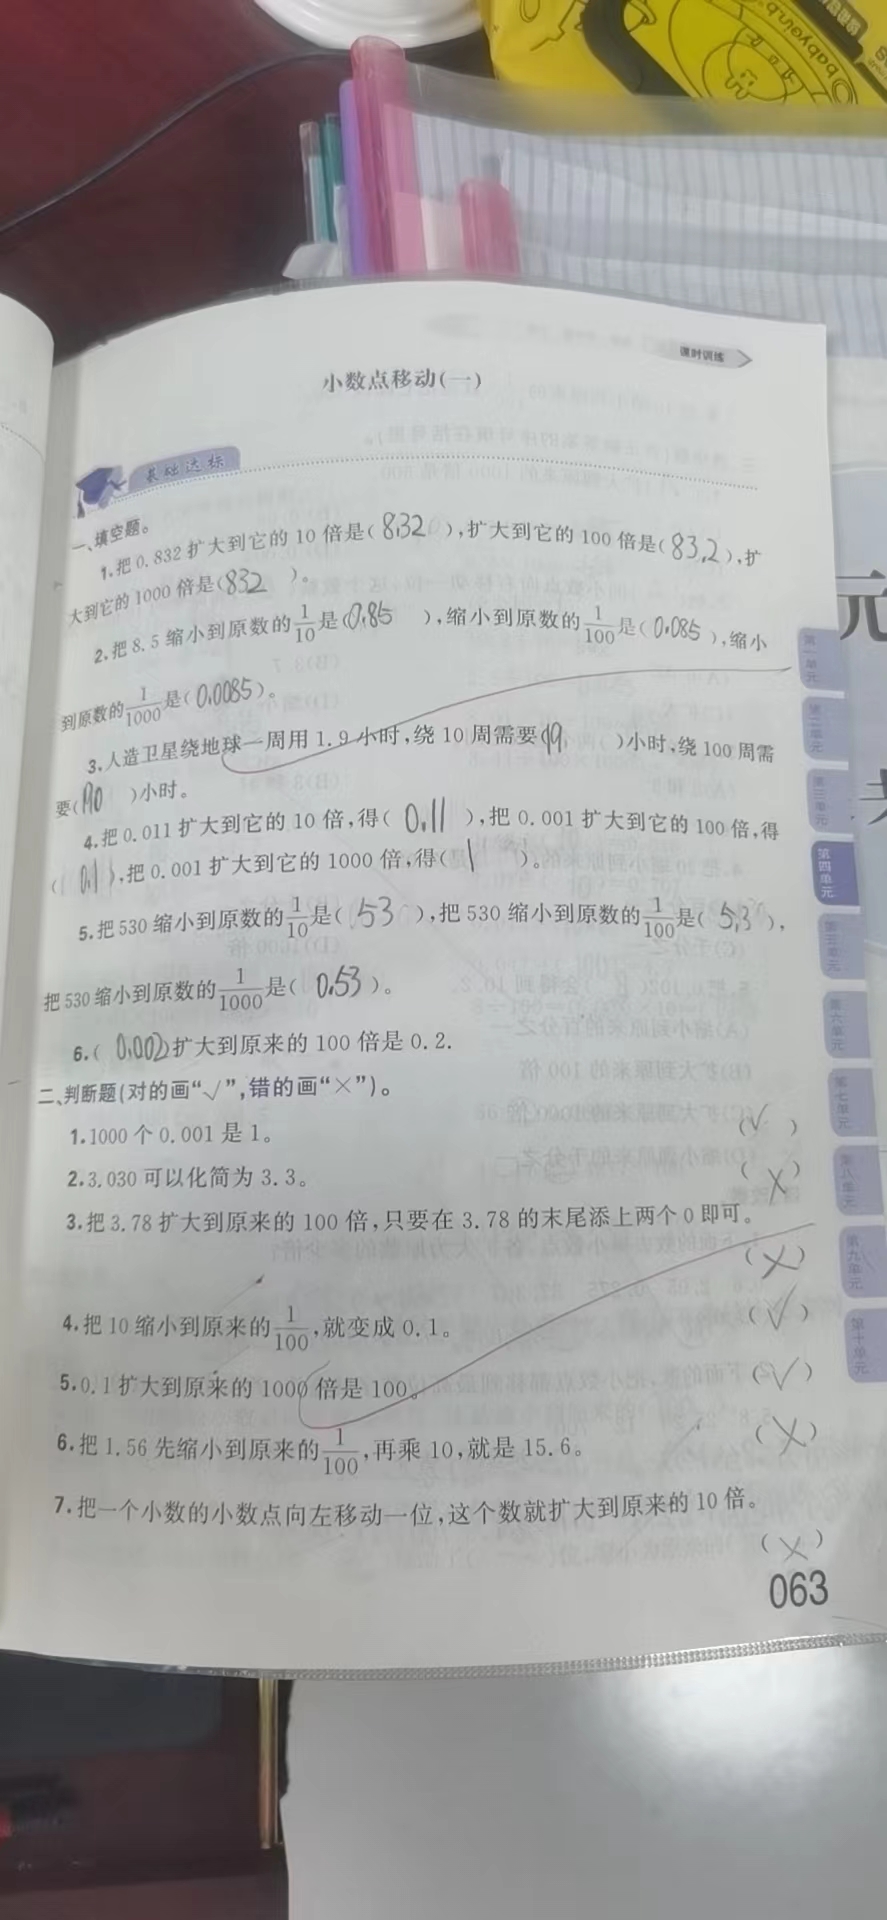 babyoung
课时训练
小数点移动(一)
基础达标
一、填空题。
1.把 0.832 扩大到它的 10 倍是( 8.32 ),扩大到它的 100 倍是( 83.2 ),扩
大到它的 1000 倍是( 832 )。
2.把 8.5 缩小到原数的1/10是( 0.85 ),缩小到原数的1/100是( 0.085 ),缩小
到原数的1/1000是( 0.0085 )。
3.人造卫星绕地球一周用 1.9 小时,绕 10 周需要( 19 )小时,绕 100 周需
要( 190 )小时。
4.把 0.011 扩大到它的 10 倍,得( 0.11 ),把 0.001 扩大到它的 100 倍,得
( 0.1 ),把 0.001 扩大到它的 1000 倍,得( 1 )。
5.把 530 缩小到原数的1/10是( 53 ),把 530 缩小到原数的1/100是( 5.3 ),
把 530 缩小到原数的1/1000是( 0.53 )。
6.( 0.002 )扩大到原来的 100 倍是 0.2.
二、判断题(对的画“√”,错的画“×”)。
1.1000 个 0.001 是 1。 ( √ )
2.3.030 可以化简为 3.3。 ( × )
3.把 3.78 扩大到原来的 100 倍,只要在 3.78 的末尾添上两个 0 即可。
( × )
4.把 10 缩小到原来的1/100,就变成 0.1。 ( √ )
5.0.1 扩大到原来的 1000 倍是 100。 ( √ )
6.把 1.56 先缩小到原来的1/100,再乘 10,就是 15.6。 ( × )
7.把一个小数的小数点向左移动一位,这个数就扩大到原来的 10 倍。
( × )
063
第一单元
第二单元
第三单元
第四单元
第五单元
第六单元
第七单元
第八单元
第九单元
第十单元
元